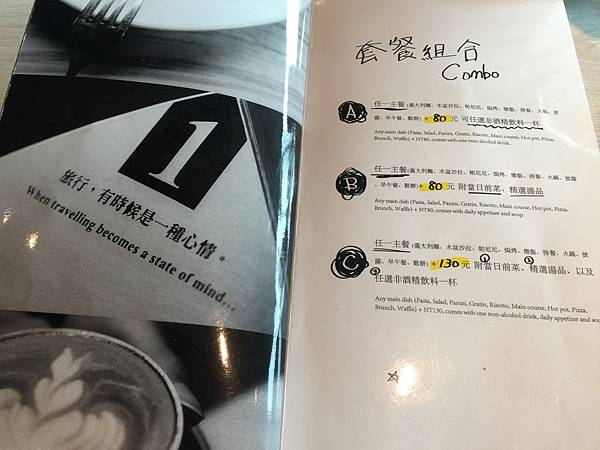 1
旅行，有時候是一種心情。
When travelling becomes a state of mind...
套餐組合
Combo
A
任一主餐 (義大利麵、木盆沙拉、帕尼尼、焗烤、燉飯、排餐、火鍋、披
薩、早午餐、鬆餅) + 80 元 可任選非酒精飲料一杯
Any main dish (Pasta, Salad, Panini, Gratin, Risotto, Main course, Hot pot, Pizza,
Brunch, Waffle) + NT80, comes with one non-alcohol drink.
B
任一主餐 (義大利麵、木盆沙拉、帕尼尼、焗烤、燉飯、排餐、火鍋、披薩
、早午餐、鬆餅) + 80 元 附當日前菜、精選湯品
Any main dish (Pasta, Salad, Panini, Gratin, Risotto, Main course, Hot pot, Pizza,
Brunch, Waffle) + NT80, comes with daily appetizer and soup.
C
任一主餐 (義大利麵、木盆沙拉、帕尼尼、焗烤、燉飯、排餐、火鍋、披
薩、早午餐、鬆餅) + 130 元 附當日前菜、精選湯品、以及
任選非酒精飲料一杯
Any main dish (Pasta, Salad, Panini, Gratin, Risotto, Main course, Hot pot, Pizza,
Brunch, Waffle) + NT130, comes with one non-alcohol drink, daily appetizer and sou